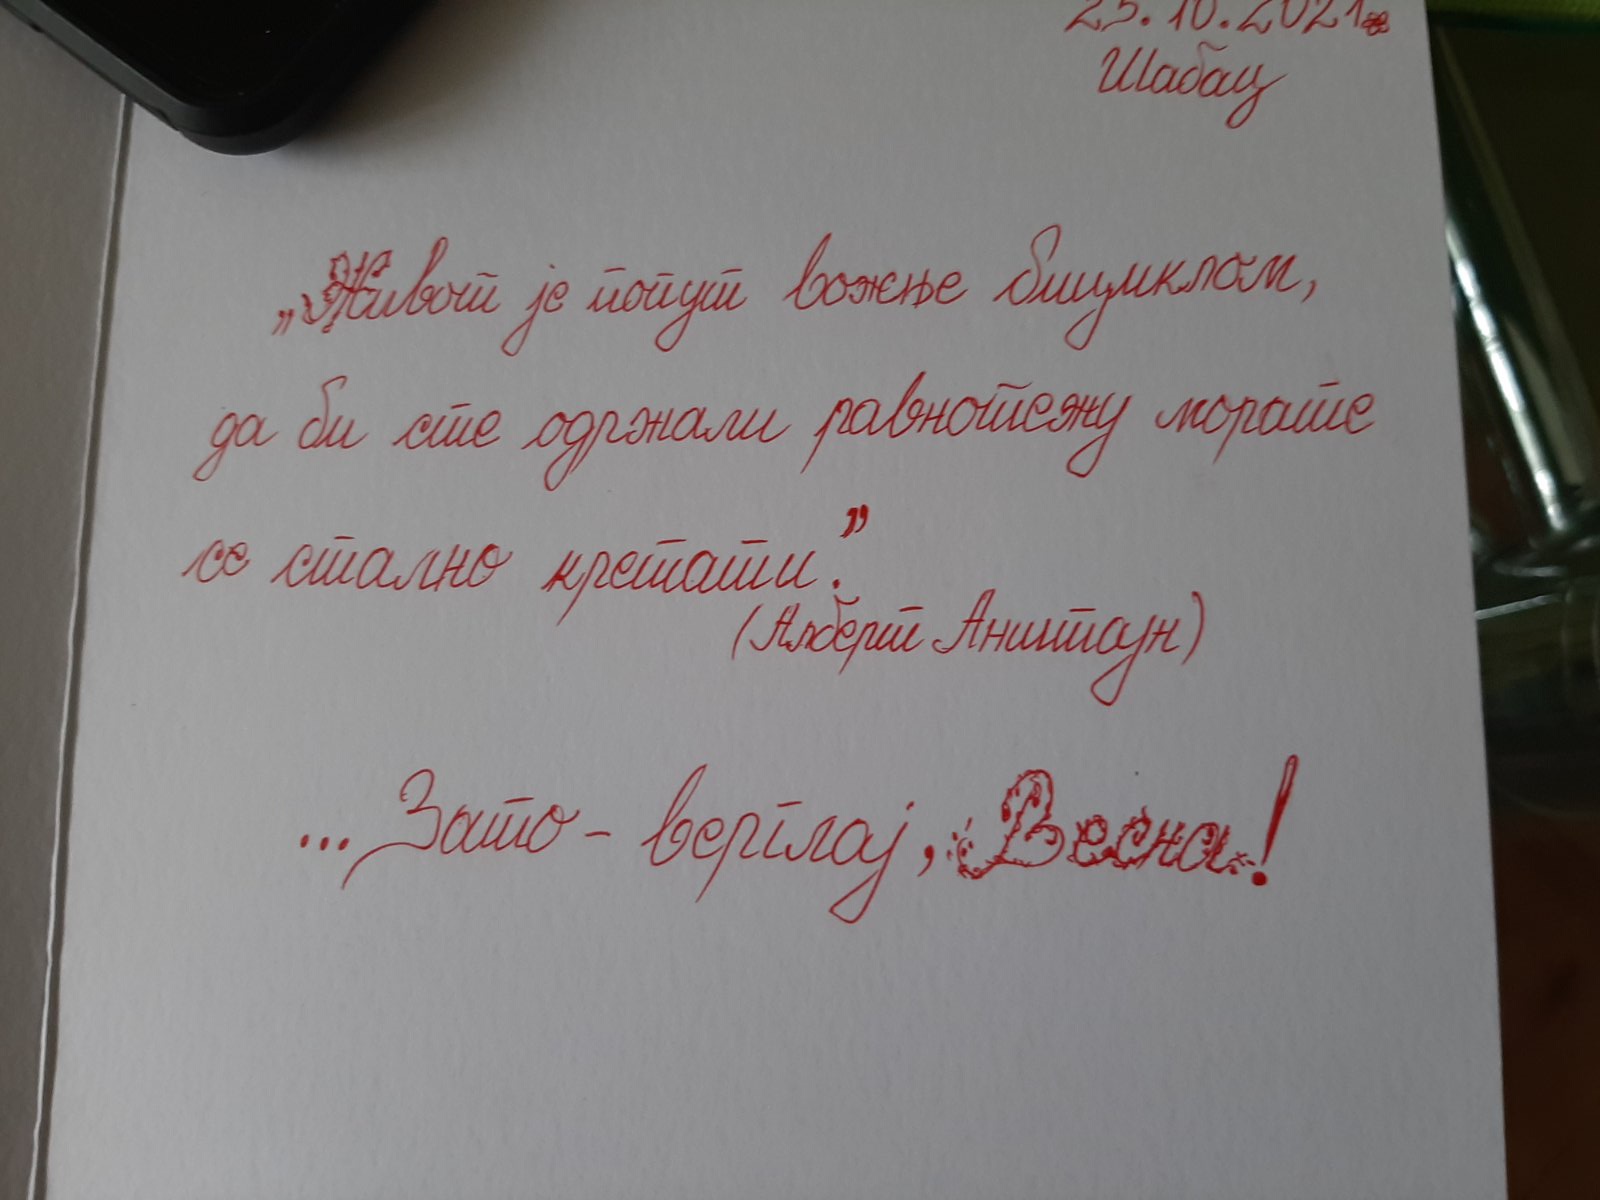 25.10.2021.
Шабац
„Живот је попут вожње бициклом,
да би сте одржали равнотежу морате
се стално кретати."
(Алберт Анштајн)
... Зато - вергглај, Весна!